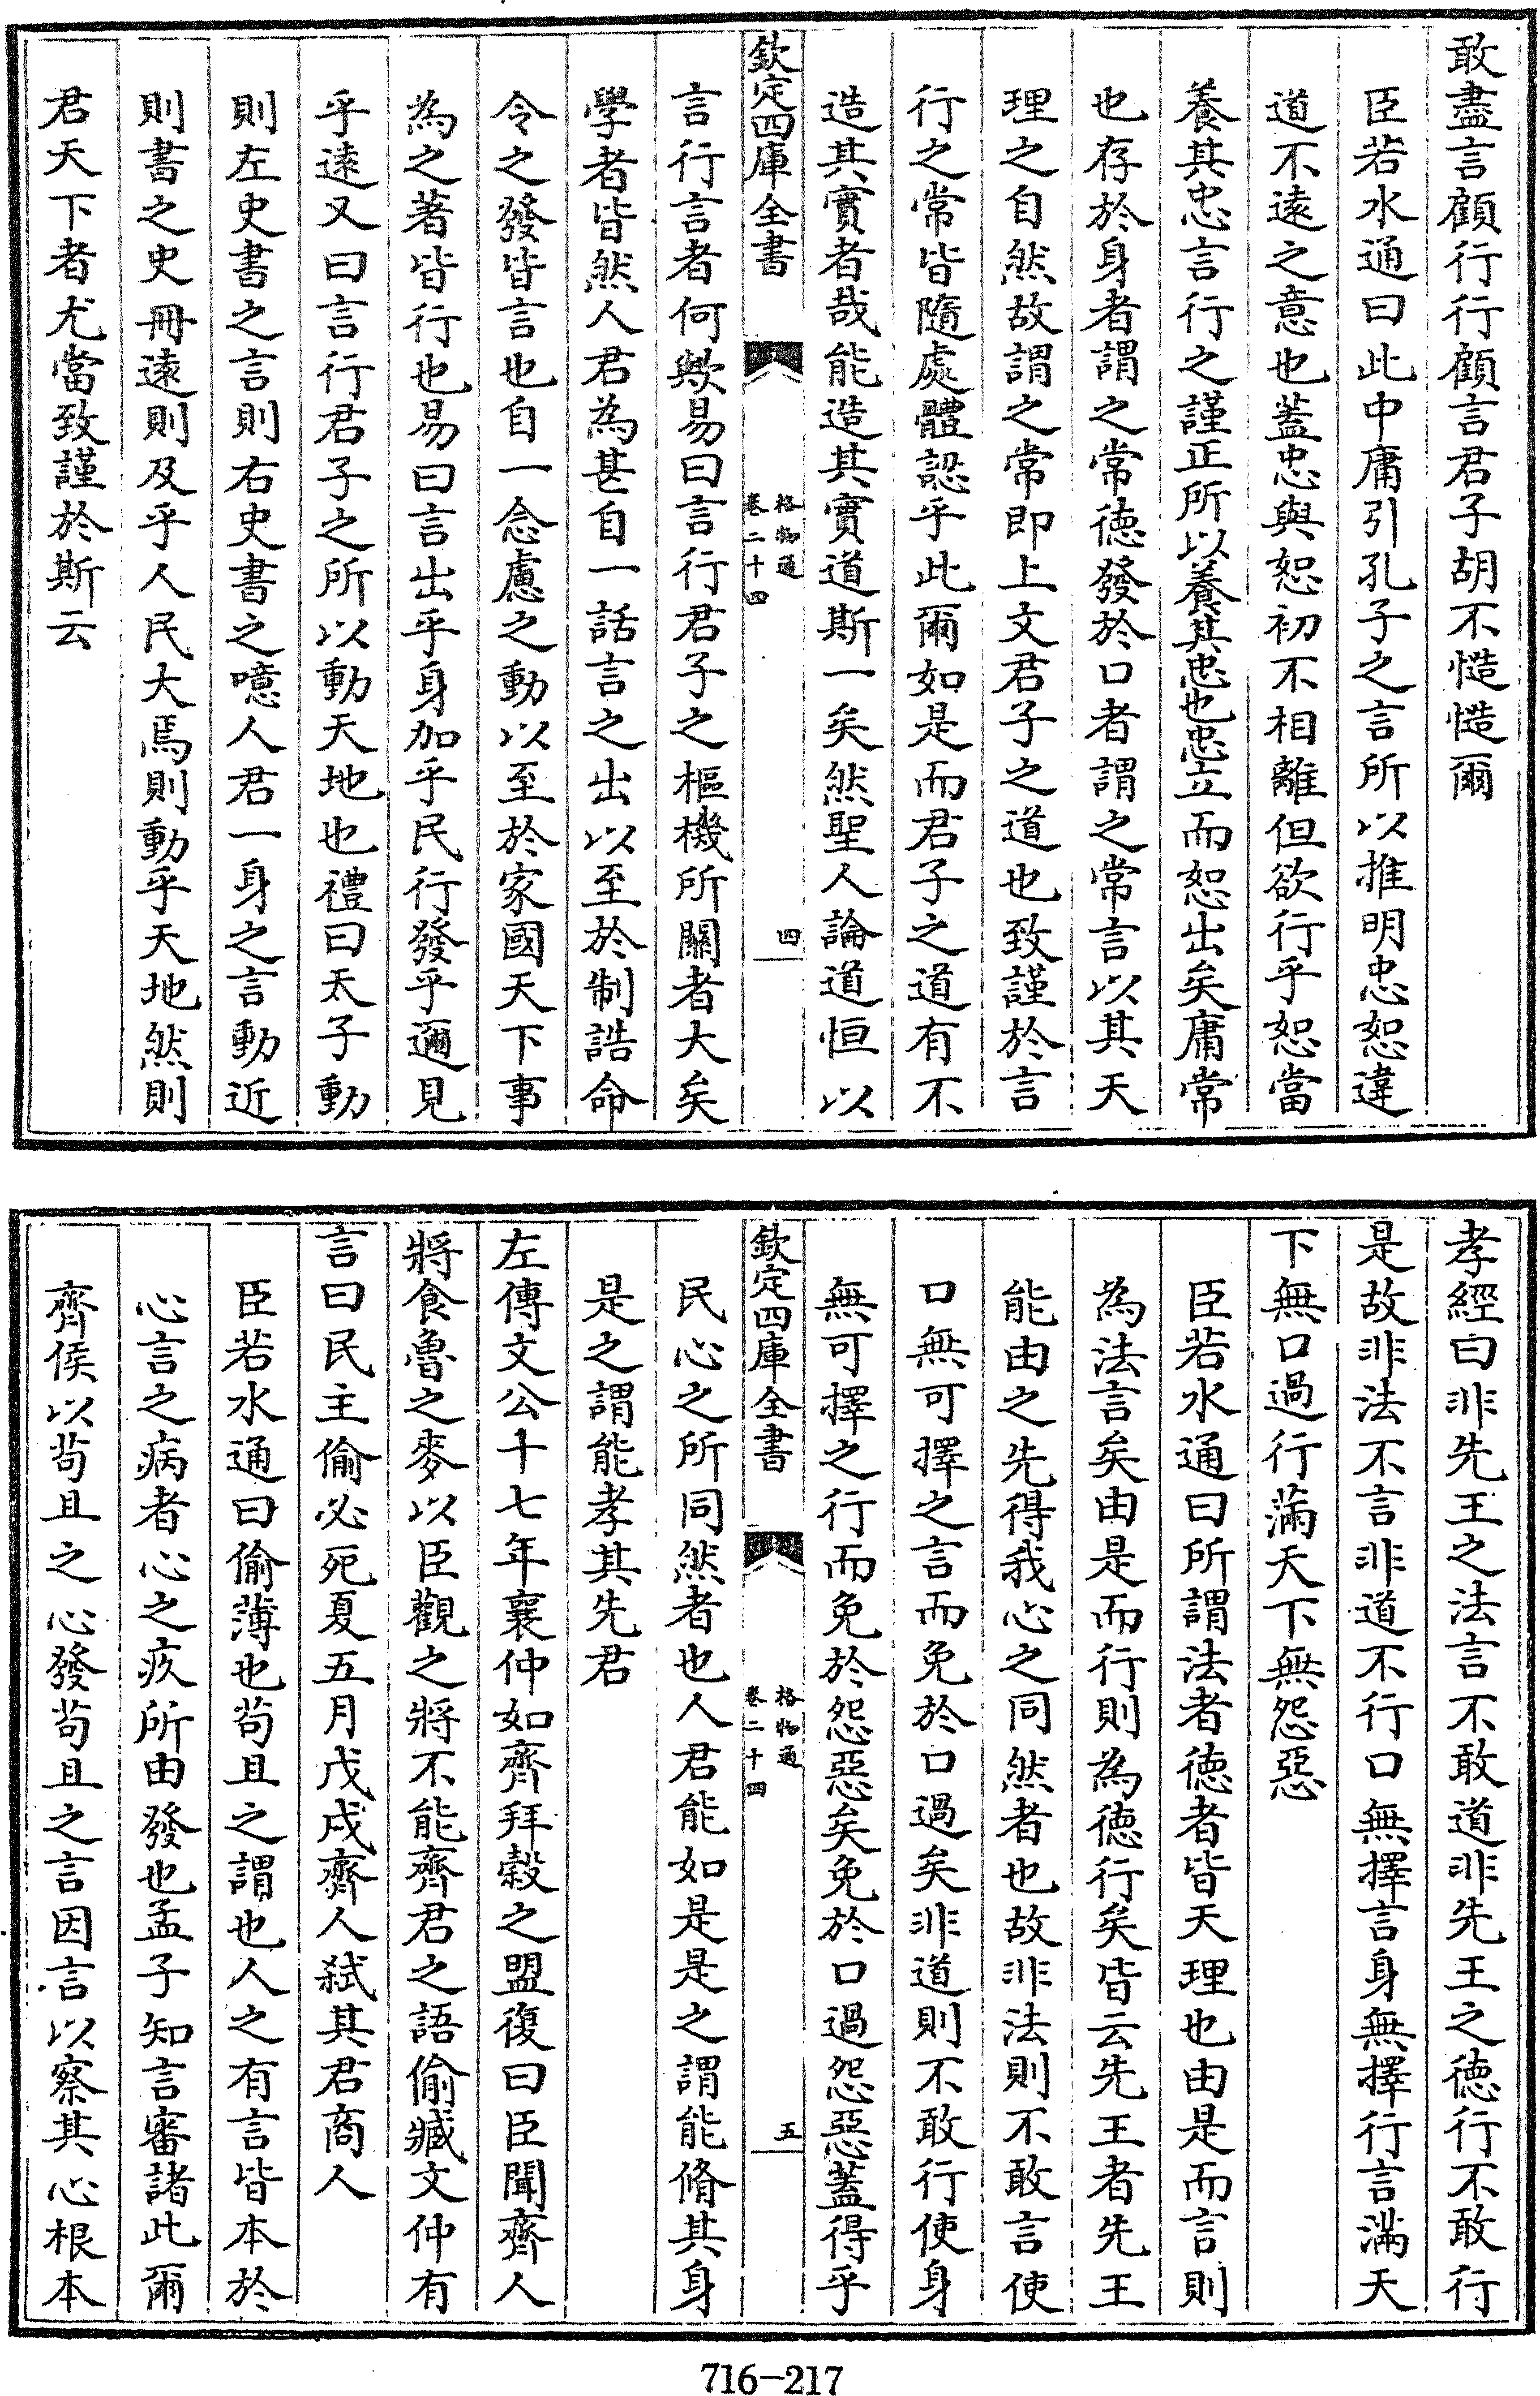 敢盡言顧行行顧言君子胡不慥慥爾
臣若水通曰此中庸引孔子之言所以推明忠恕違
道不遠之意也蓋忠與恕初不相離但欲行乎恕當
養其忠言行之謹正所以養其忠也忠立而恕出矣庸常
也存於身者謂之常徳發於口者謂之常言以其天
理之自然故謂之常即上文君子之道也致謹於言
行之常皆隨處體認乎此爾如是而君子之道有不
造其實者哉能造其實道斯一矣然聖人論道恒以
欽定四庫全書
格物通
卷二十四
四
言行言者何歟易曰言行君子之樞機所關者大矣
學者皆然人君為甚自一話言之出以至於制誥命
令之發皆言也自一念慮之動以至於家國天下事
為之著皆行也易曰言出乎身加乎民行發乎邇見
乎逺又曰言行君子之所以動天地也禮曰天子動
則左史書之言則右史書之噫人君一身之言動近
則書之史冊逺則及乎人民大焉則動乎天地然則
君天下者尤當致謹於斯云
孝經曰非先王之法言不敢道非先王之徳行不敢行
是故非法不言非道不行口無擇言身無擇行言滿天
下無口過行滿天下無怨惡
臣若水通曰所謂法者徳者皆天理也由是而言則
為法言矣由是而行則為徳行矣皆云先王者先王
能由之先得我心之同然者也故非法則不敢言使
口無可擇之言而免於口過矣非道則不敢行使身
無可擇之行而免於怨惡矣免於口過怨惡蓋得乎
欽定四庫全書
格物通
卷二十四
五
民心之所同然者也人君能如是是之謂能脩其身
是之謂能孝其先君
左傳文公十七年襄仲如齊拜榖之盟復曰臣聞齊人
將食魯之麥以臣觀之將不能齊君之語偷臧文仲有
言曰民主偷必死夏五月戊戌齊人弑其君商人
臣若水通曰偷薄也茍且之謂也人之有言皆本於
心言之病者心之疚所由發也孟子知言審諸此爾
齊侯以茍且之心發茍且之言因言以察其心根本
716-217